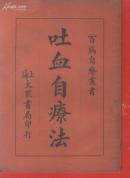 百病自療叢書
吐血自療法
上海大眾書局印行